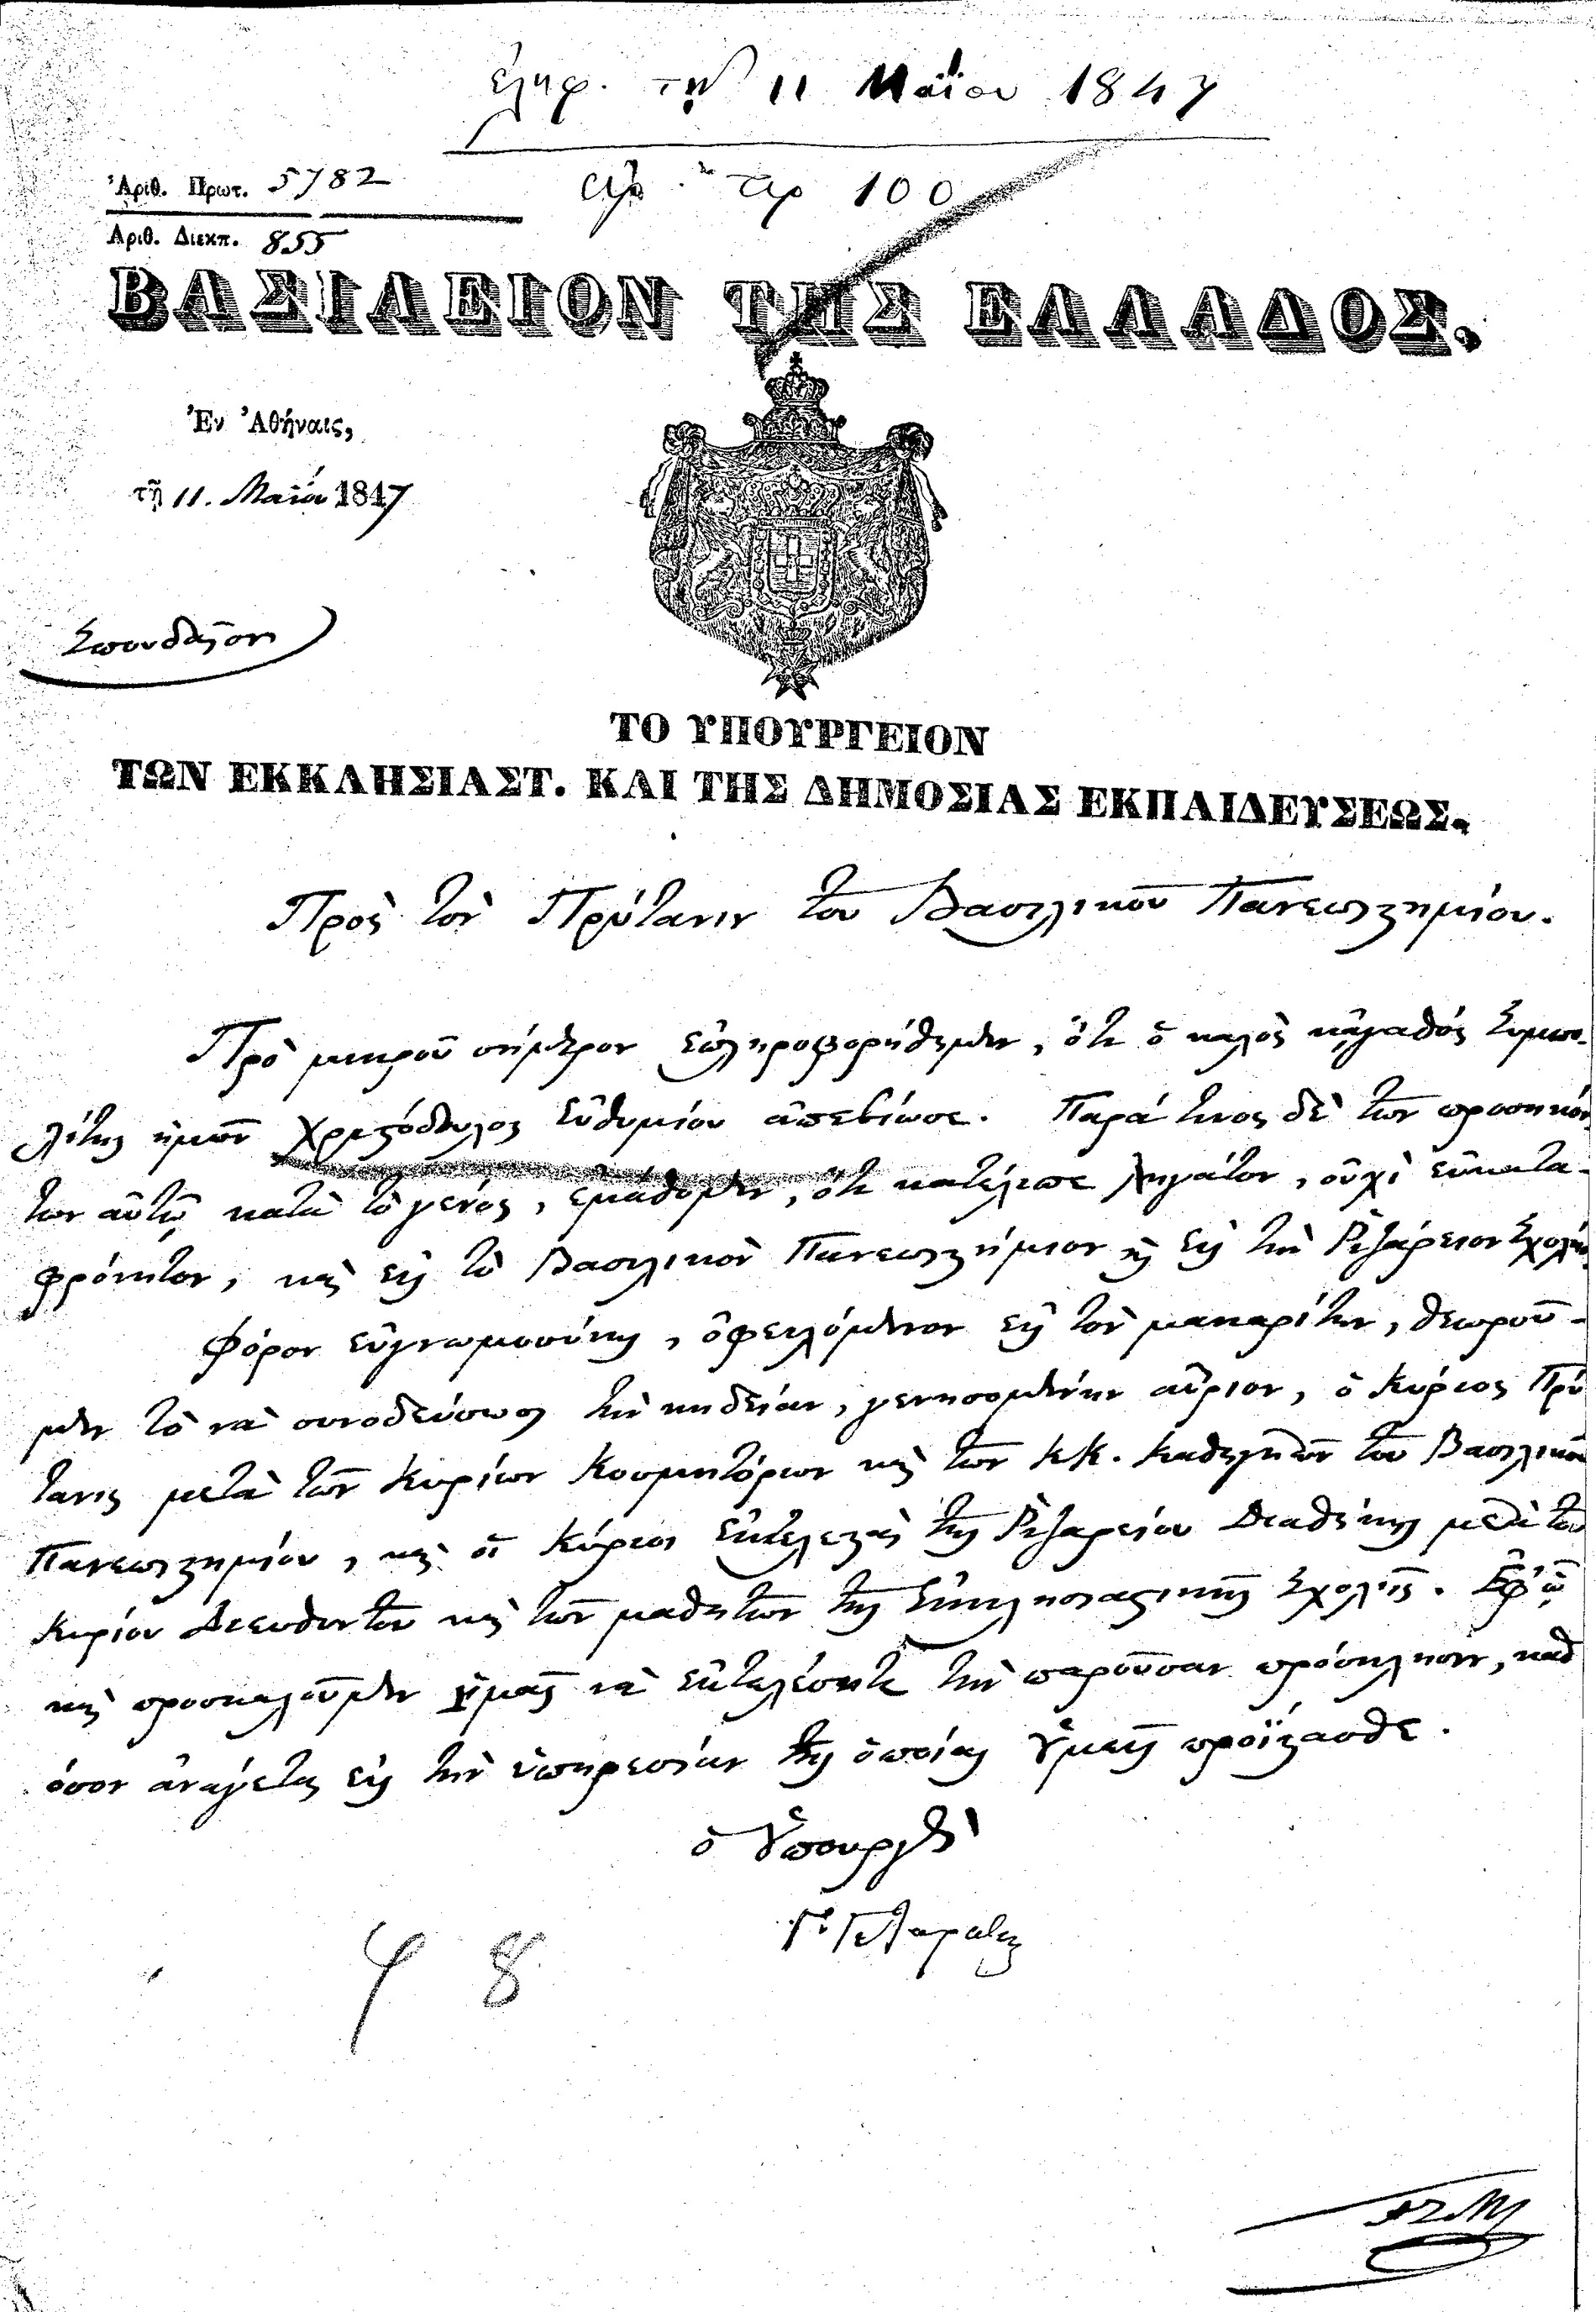 ἐλήφ. τῇ 11 Μαΐου 1847
ἀρ. πρ 100
Ἀριθ. Πρωτ. 5782
Ἀριθ. Διεκπ. 855
ΒΑΣΙΛΕΙΟΝ ΤΗΣ ΕΛΛΑΔΟΣ.
Ἐν Ἀθήναις,
τῇ 11. Μαΐου 1847
Σπουδαῖον
ΤΟ ΥΠΟΥΡΓΕΙΟΝ
ΤΩΝ ΕΚΚΛΗΣΙΑΣΤ. ΚΑΙ ΤΗΣ ΔΗΜΟΣΙΑΣ ΕΚΠΑΙΔΕΥΣΕΩΣ.
Πρὸς τὸν Πρύτανιν τοῦ Βασιλικοῦ Πανεπιστημίου.
Πρὸ μικροῦ σήμερον ἐπληροφορήθημεν, ὅτι ὁ καλὸς κἀγαθὸς Συμπο-
λίτης ἡμῶν Χριστόδουλος Εὐθυμίου ἀπεβίωσε. Παρά τινος δὲ τῶν προσηκόν-
των αὐτῷ κατὰ τὸ γένος, ἐμάθομεν, ὅτι κατέλιπε ληγάτον, οὐχὶ εὐκατα-
φρόνητον, καὶ εἰς τὸ Βασιλικὸν Πανεπιστήμιον καὶ εἰς τὴν Ριζάρειον Σχολήν.
Φόρον εὐγνωμοσύνης, ὀφειλόμενον εἰς τὸν μακαρίτην, θεωροῦ-
μεν τὸ νὰ συνοδεύσωσι τὴν κηδείαν, γενησομένην αὔριον, ὁ Κύριος Πρύ
τανις μετὰ τῶν Κυρίων Κοσμητόρων καὶ τῶν ΚΚ. Καθηγητῶν τοῦ Βασιλικοῦ
Πανεπιστημίου, καὶ οἱ Κύριοι Ἐκτελεσταὶ τῆς Ριζαρείου Διαθήκης μετὰ τοῦ
Κυρίου Διευθυντοῦ καὶ τῶν μαθητῶν τῆς Ἐκκλησιαστικῆς Σχολῆς. Ἐφ' ᾧ
καὶ προσκαλοῦμεν ὑμᾶς νὰ ἐκτελέσητε τὴν παροῦσαν πρόσκλησιν, καθ'
ὅσον ἀνάγεται εἰς τὴν ὑπηρεσίαν τῆς ὁποίας ὑμεῖς προΐστασθε.
ὁ Ὑπουργὸς
φ 8